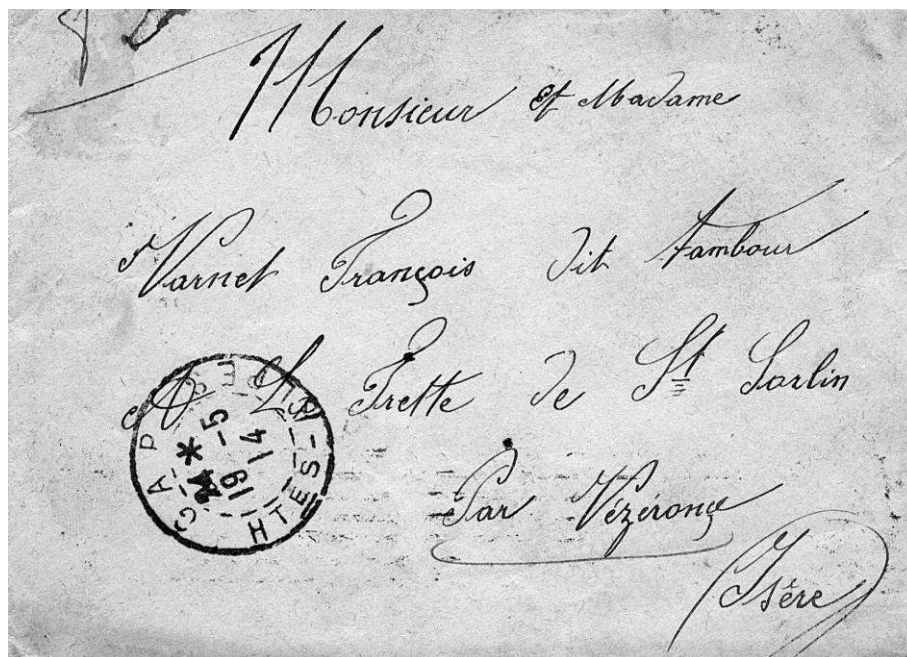 Monsieur et Madame
Varnet François dit Tambour
A La Frette de St Sorlin
Par Vézéronçe
Isère
GAP HTES-ALPES
19 -5
14